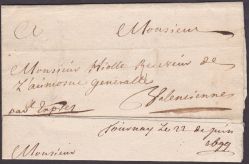 A Monsieur
Monsieur Hiolle Receveur de
L'aumosne Generalle
par Exprès Valenciennes
Tournay Le 22 de juin
1699
Monsieur